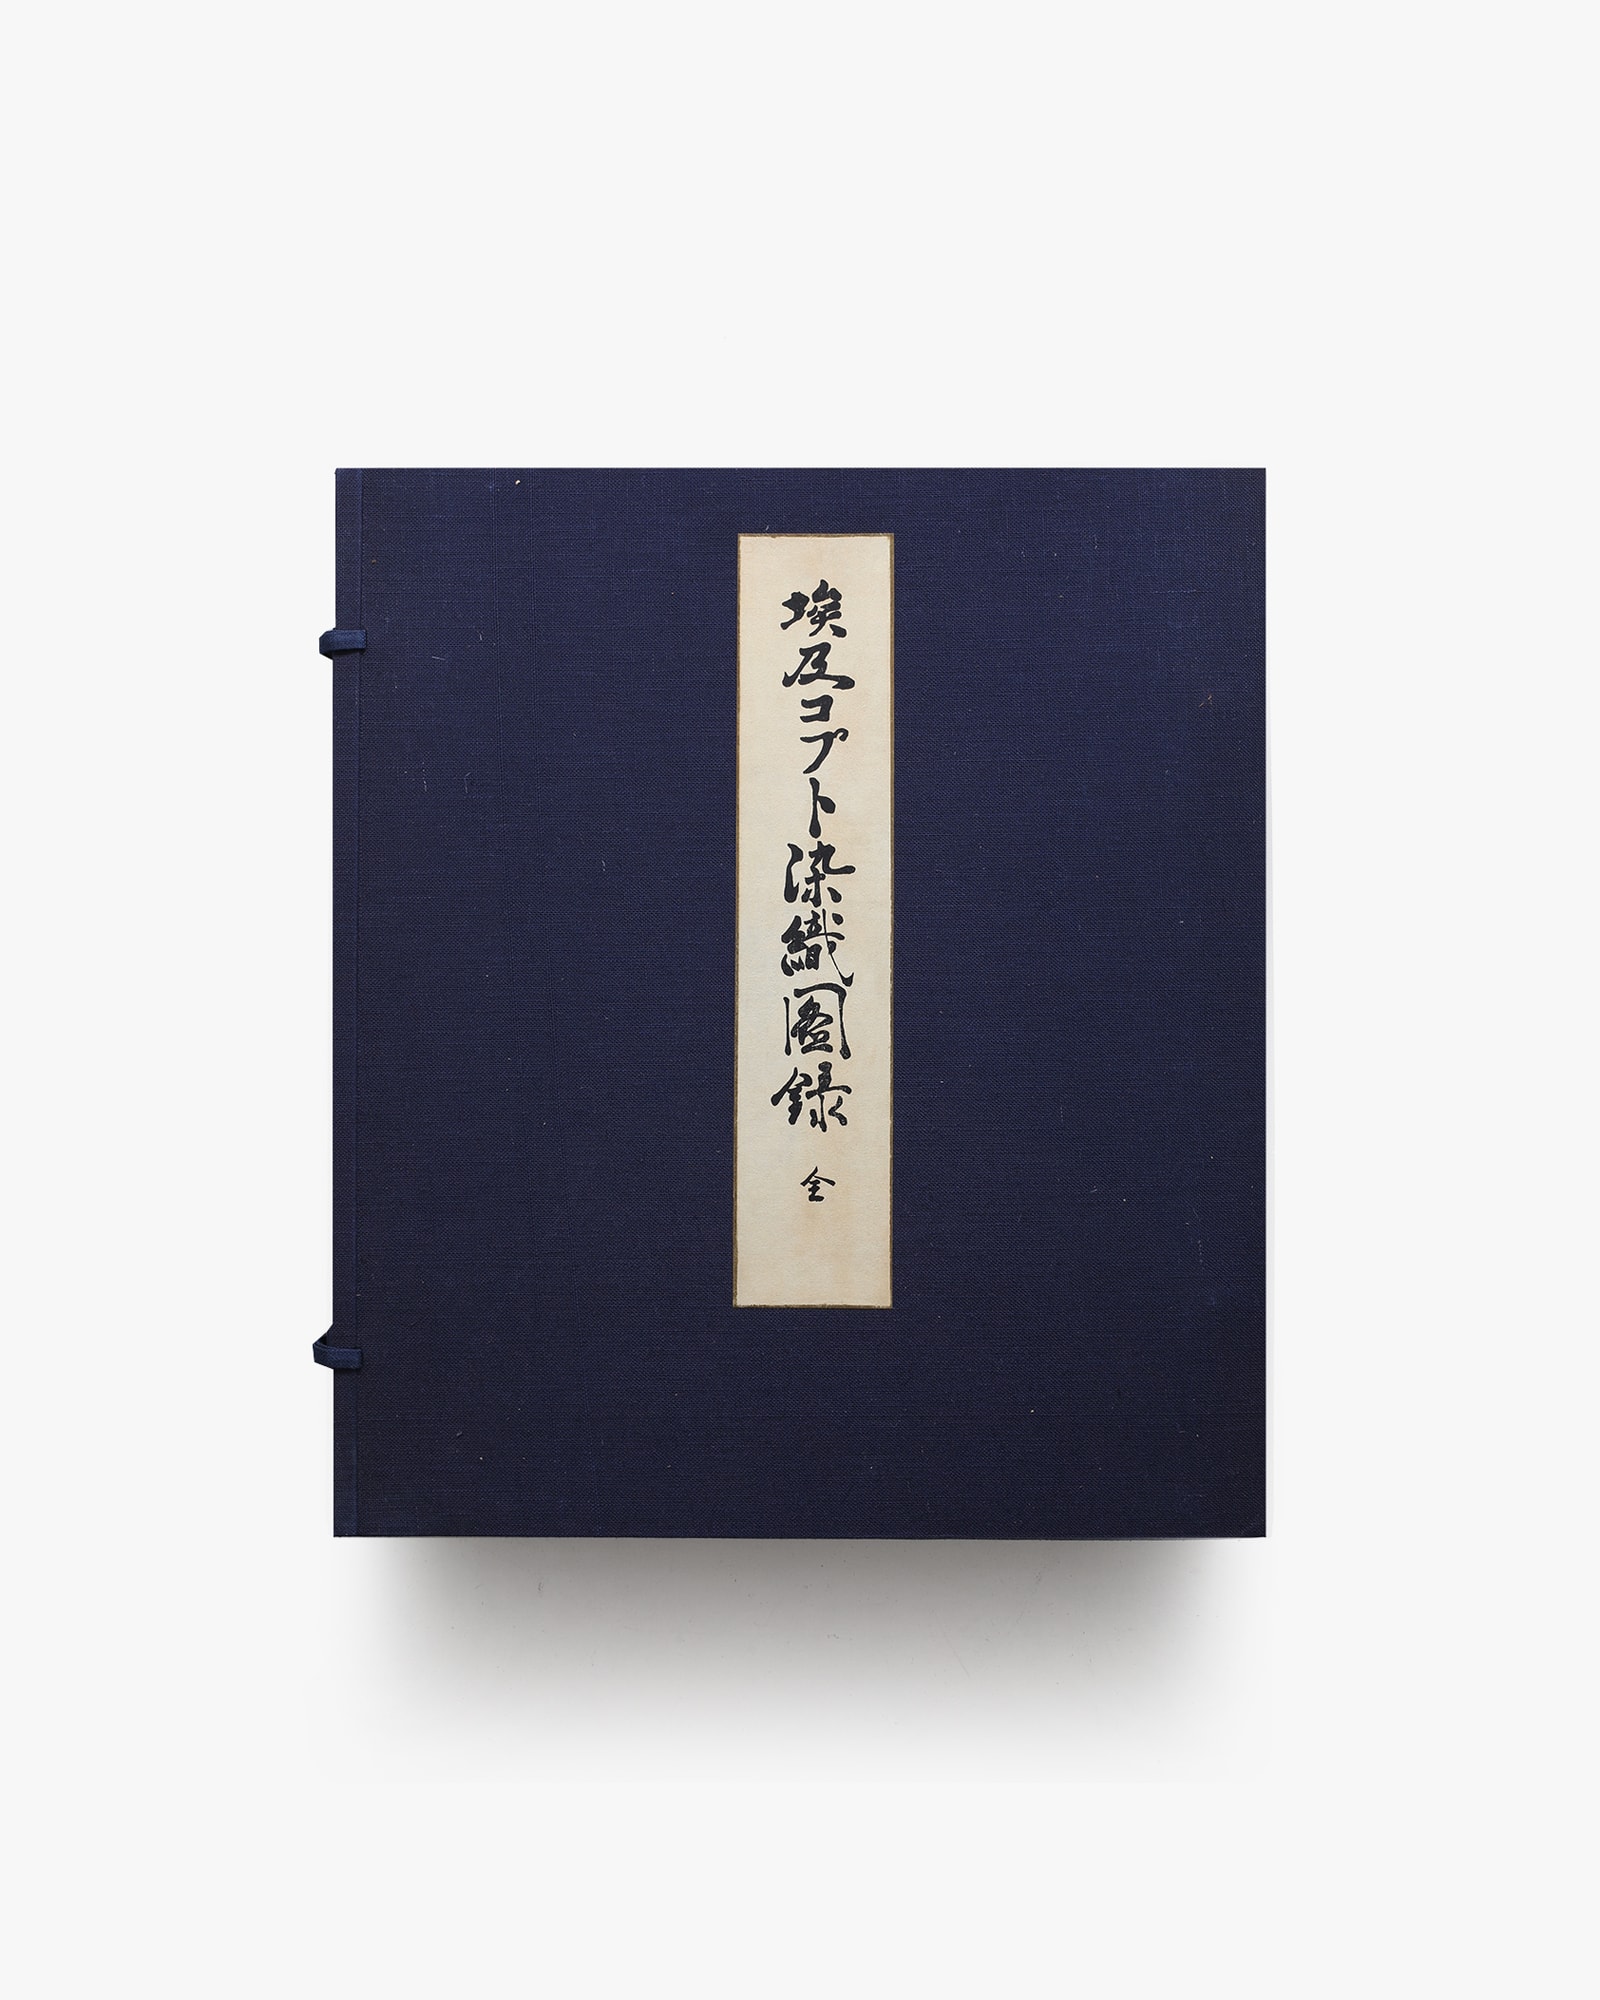 埃及コプト染織圖錄 全